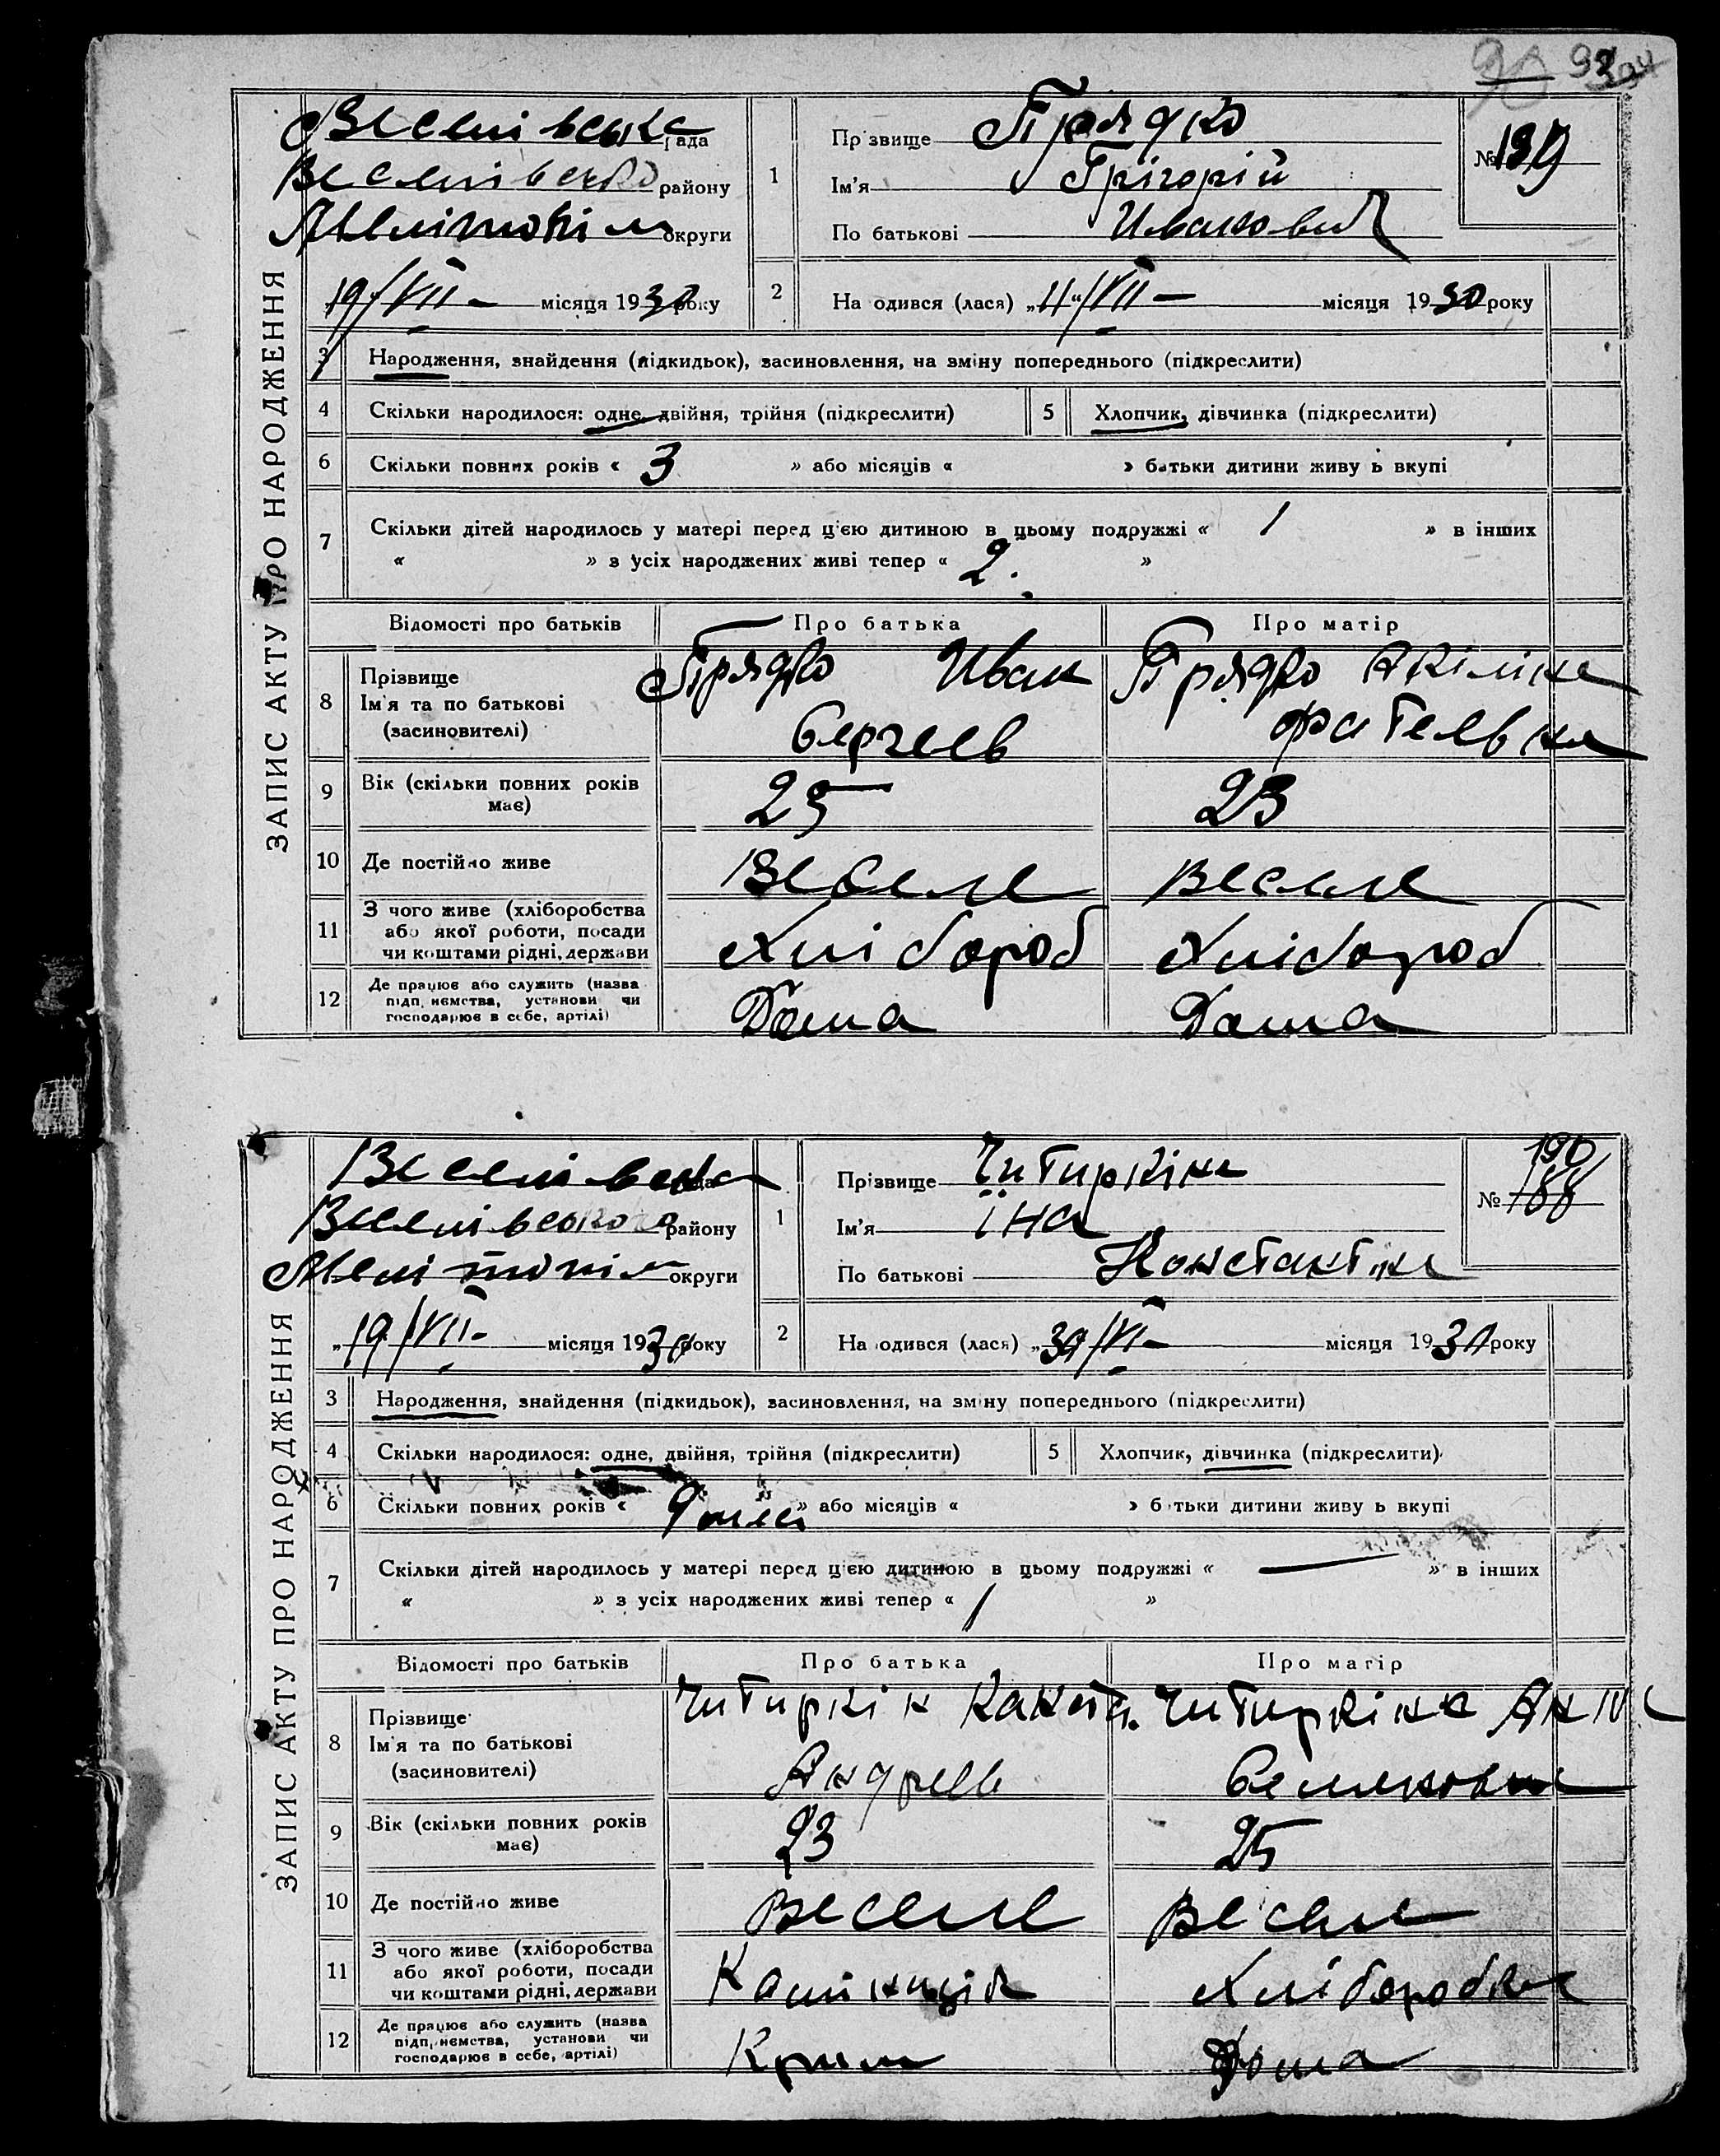 ЗАПИС АКТУ ПРО НАРОДЖЕННЯ
Веселівська рада
Веселівського району
Мелітопілм округи
19/VII- місяця 1930 року
1
Прізвище Прядко
Ім'я Грігорій
По батькові Иванович
№ 189
2
На одився (лася) „11“/VII- місяця 1930 року
3 Народження, знайдення (підкидьок), засиновлення, на зміну попереднього (підкреслити)
4 Скільки народилося: одне, двійня, трійня (підкреслити) 5 Хлопчик, дівчинка (підкреслити)
6 Скільки повних років « 3 » або місяців « » батьки дитини живу ь вкупі
7 Скільки дітей народилось у матері перед цією дитиною в цьому подружжі « 1 » в інших
« » з усіх народжених живі тепер « 2. »
Відомості про батьків Про батька Про матір
8 Прізвище
Ім'я та по батькові
(засиновителі)
Прядко Иван
Сергеев
Прядко Акіліна
9 Вік (скільки повних років
має)
25 23
10 Де постійно живе Веселе Веселе
11 З чого живе (хліборобства
або якої роботи, посади
чи коштами рідні, держави
Хлібороб Хлібороб
12 Де працює або служить (назва
підп, иємства, установи чи
господарює в себе, артілі)
Дома Дома
ЗАПИС АКТУ ПРО НАРОДЖЕННЯ
Веселівська рада
Веселівського району
Мелітопілм округи
„19/VII- місяця 1930 року
1
Прізвище Читиркіна
Ім'я їна
По батькові Константин
190
№ 188
2
На одився (лася) „30/VI- місяця 1930 року
3 Народження, знайдення (підкидьок), засиновлення, на зміну попереднього (підкреслити)
4 Скільки народилося: одне, двійня, трійня (підкреслити) 5 Хлопчик, дівчинка (підкреслити)
6 Скільки повних років « » або місяців « » батьки дитини живу ь вкупі
7 Скільки дітей народилось у матері перед цією дитиною в цьому подружжі « — » в інших
« » з усіх народжених живі тепер « 1 »
Відомості про батьків Про батька Про матір
8 Прізвище
Ім'я та по батькові
(засиновителі)
Читиркін
Андреев
Читиркіна
Семеновна
9 Вік (скільки повних років
має)
23 25
10 Де постійно живе Веселе Веселе
11 З чого живе (хліборобства
або якої роботи, посади
чи коштами рідні, держави
Хліборобка
12 Де працює або служить (назва
підп, иємства, установи чи
господарює в себе, артілі)
Крим Дома